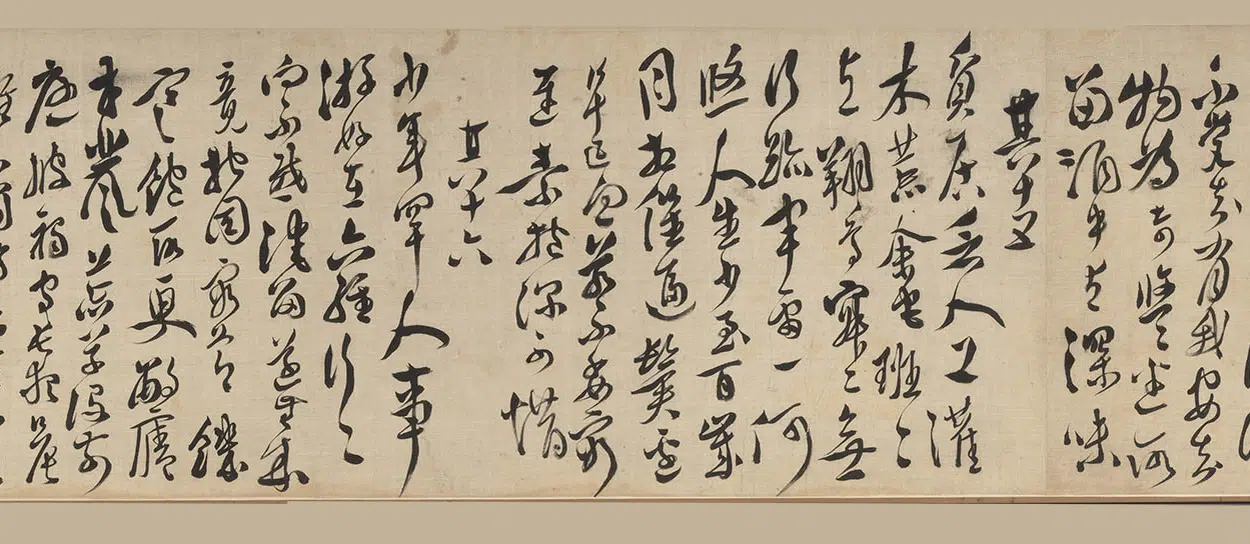 不覺知有我安知
物為貴悠悠迷所
留酒中有深味
其十五
貧居乏人工灌
木荒余宅班班
有翔鳥寂寂無
行跡宇宙一何
悠人生少至百歲
月相催逼鬢邊
早已白若不委窮
達素抱深可惜
其十六
少年罕人事
游好在六經行行
向不惑淹留遂無成
竟抱固窮節飢
寒飽所更敝廬
交悲風荒草沒前
庭披褐守長夜晨